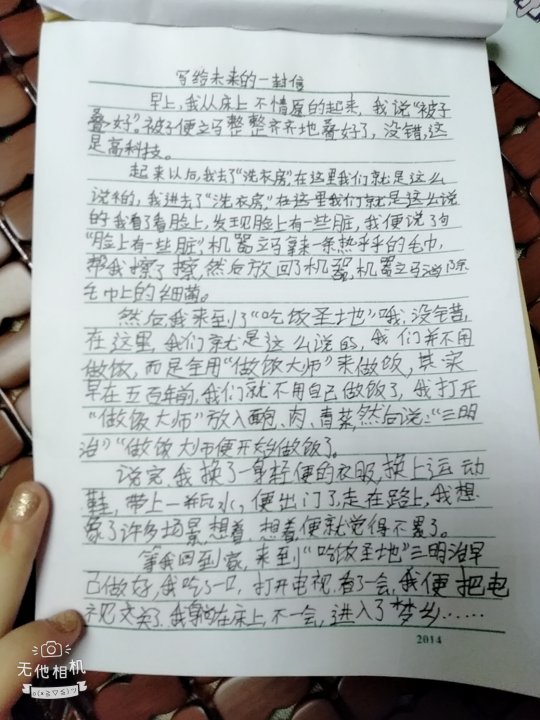 写给未来的一封信
早上,我从床上不情愿的起来,我说“被子
叠好”。被子便立马整整齐齐地叠好了,没错,这
是高科技。
起来以后,我去了“洗衣房”,在这里我们就是这么
说的,我进去了“洗衣房”,在这里我们就是这么说
的我看了看脸上,发现脸上有一些脏,我便说了句
“脸上有一些脏”,机器立马拿来一条热乎乎的毛巾,
帮我擦了擦,然后放回了机器,机器立马消除
毛巾上的细菌。
然后,我来到了“吃饭圣地”哦,没错,
在这里,我们就是这么说的,我们并不用
做饭,而是全用“做饭大师”来做饭,其实
早在五百年前,我们就不用自己做饭了,我打开
“做饭大师”放入面包、肉、青菜,然后说:“三明
治”“做饭大师便开始做饭了。
说完,我换了一身轻便的衣服,换上运动
鞋,带上一瓶水,便出门了,走在路上,我想
象了许多场景,想着,想着,便就觉得不累了。
等我回到家,来到“吃饭圣地”三明治早
已做好,我吃了一口,打开电视,看了一会,我便把电
视关了,我躺在床上,不一会,进入了梦乡……
2014
无他相机